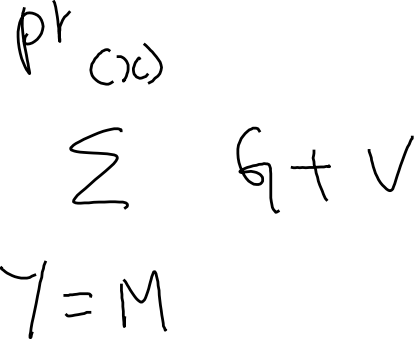 pr (x)
Σ G + V
Y = M